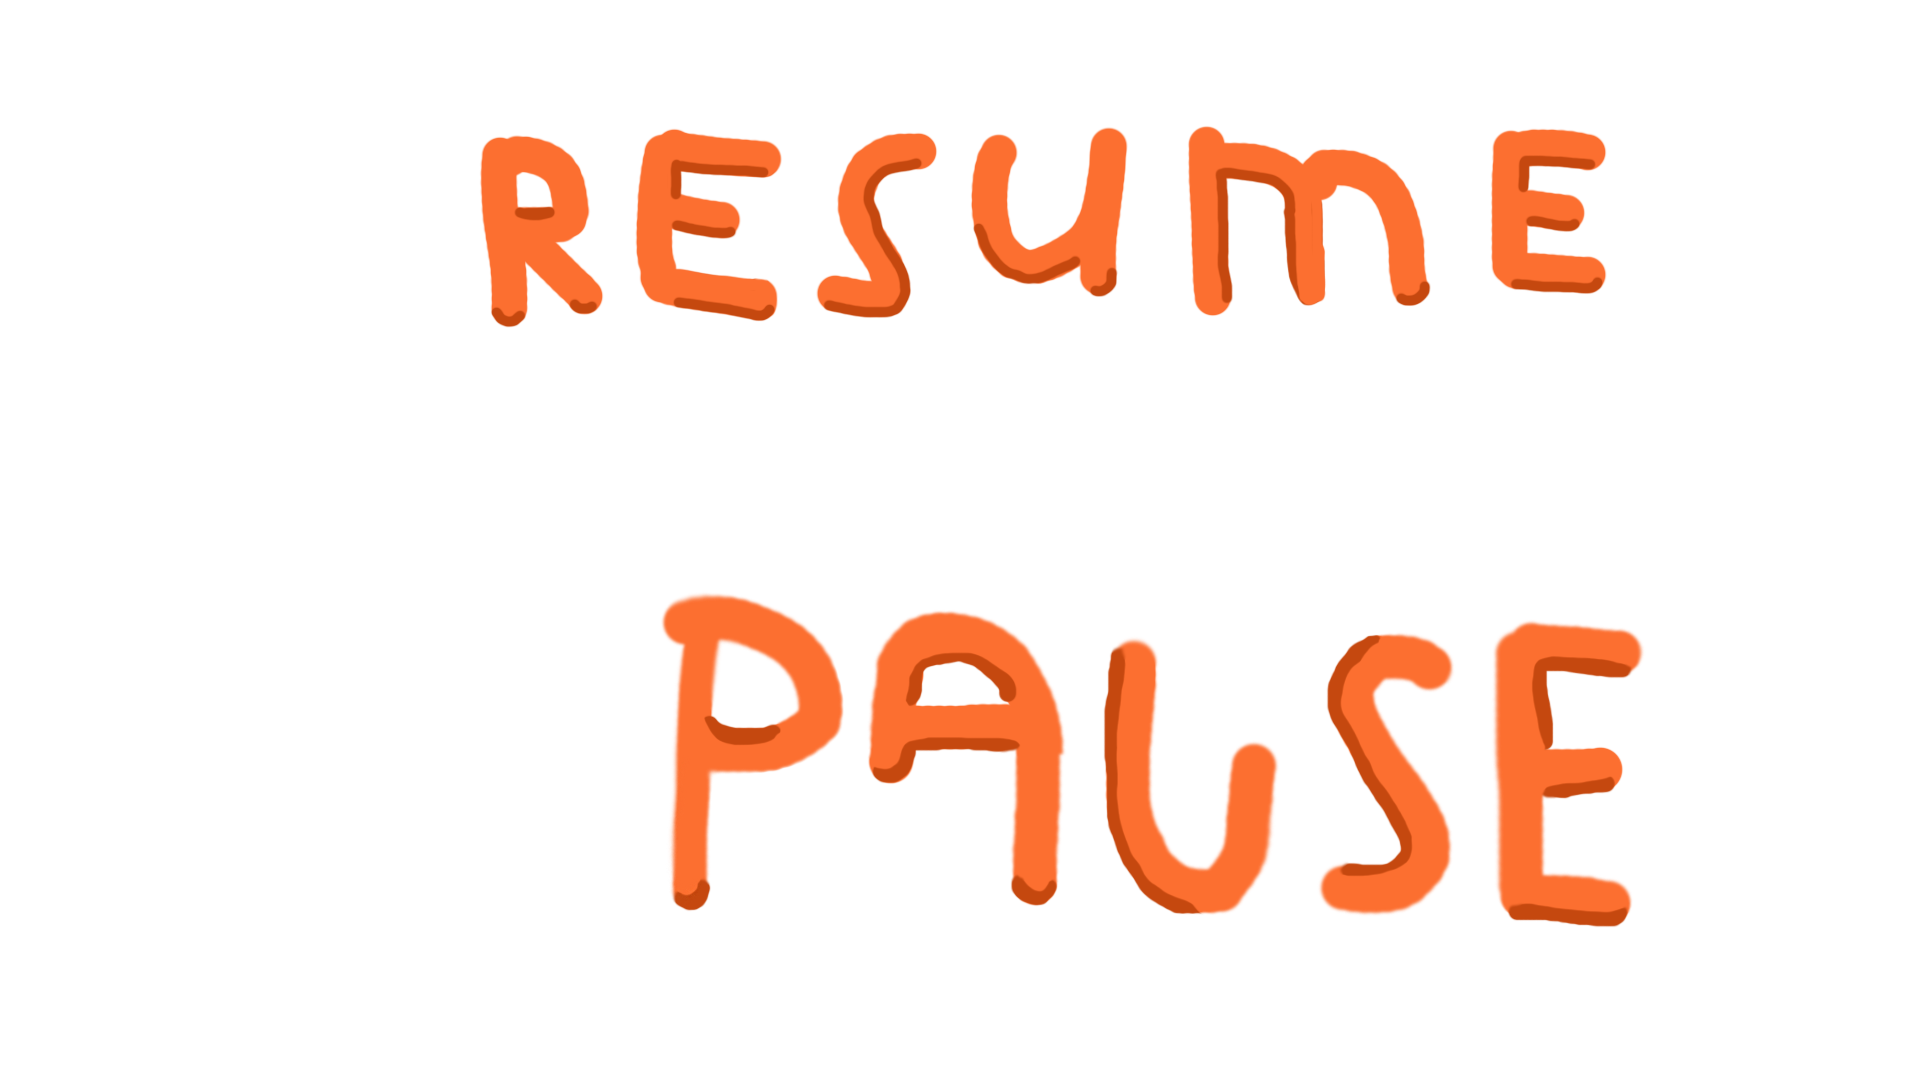 RESUME
PAUSE